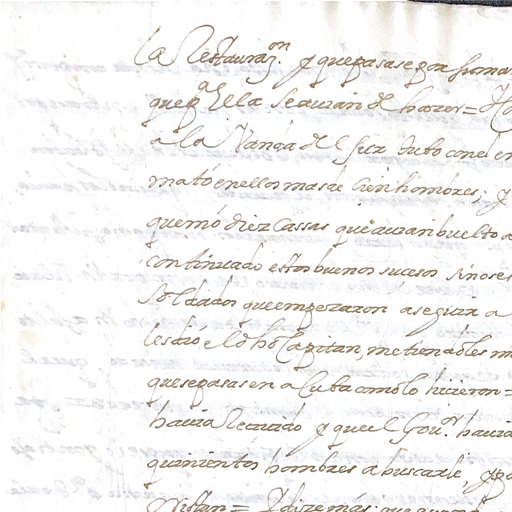 la Restauraon. y que pasase por firma
que pa ella se auian de hazer = 
a la Vanda del sur tubo con el en
mato en ellos mas de cien hombres, y
quemó diez cassas que auian buelto a
continuado estos buenos sucesos sino se
soldados que empezaron a seguir a
les dió el dho Capitan, metiendoles m
que se pasasen a Cuba como lo hizieron =
hauia Reciuido y que el Gour. hauia
quinientos hombres a buscarle, y
= y dize más que